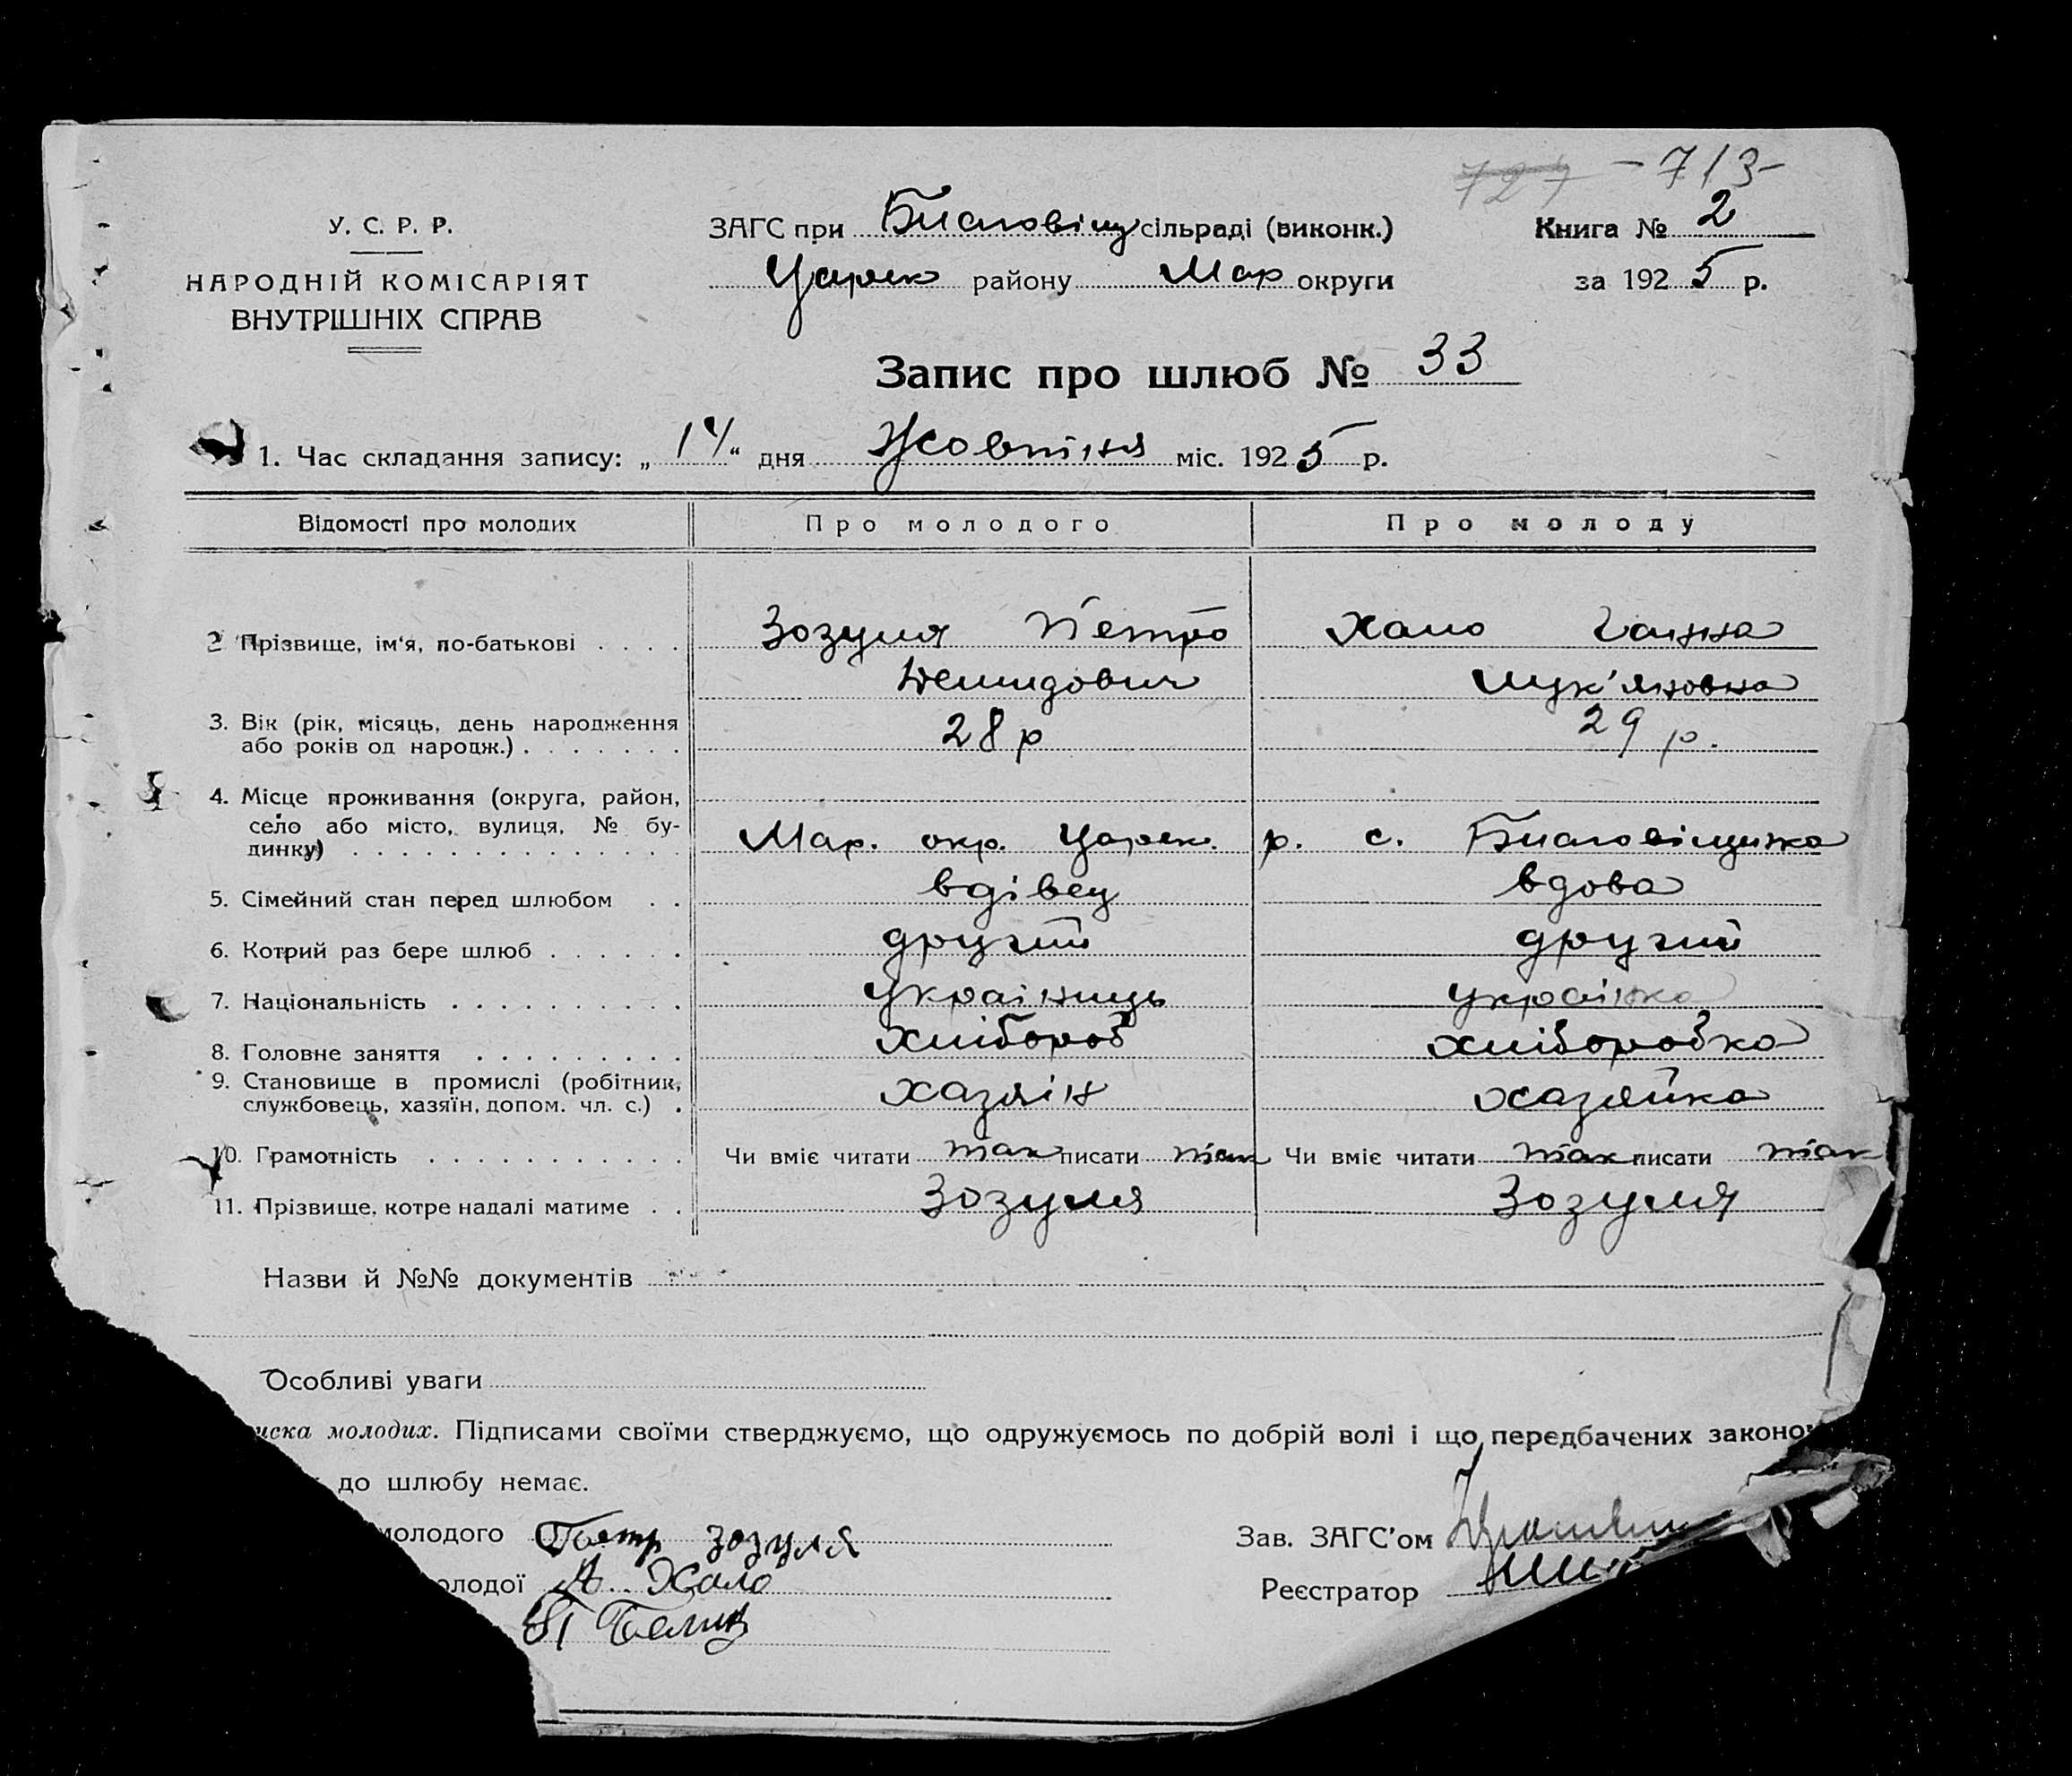 727 - 713 -
У. С. Р. Р.
НАРОДНІЙ КОМІСАРІЯТ
ВНУТРІШНІХ СПРАВ
ЗАГС при Благовіщ сільраді (виконк.)
Царек району Мар округи
Книга № 2
за 1925 р.
Запис про шлюб № 33
1. Час складання запису: „14“ дня Жовтня міс. 1925 р.
Відомості про молодих Про молодого Про молоду
2 Прізвище, ім'я, по-батькові . . . . Зозуля Петро Хало Ганна
Демидович Лук'яновна
3. Вік (рік, місяць, день народження
або років од народж.) . . . . . . . 28 р 29 р.
4. Місце проживання (округа, район,
село або місто, вулиця, № бу-
динку) . . . . . . . . . . . . . . Мар. окр. Царек. р. с. Благовіщинка
5. Сімейний стан перед шлюбом . . вдівец вдова
6. Котрий раз бере шлюб . . . . . . другий другий
7. Національність . . . . . . . . . . українць українка
8. Головне заняття . . . . . . . . . хлібороб хліборобка
9. Становище в промислі (робітник,
службовець, хазяїн, допом. чл. с.) . хазяін хазяйка
10. Грамотність . . . . . . . . . . . Чи вміє читати так писати так Чи вміє читати так писати так
11. Прізвище, котре надалі матиме . . Зозуля Зозуля
Назви й №№ документів
Особливі уваги
иска молодих. Підписами своїми стверджуємо, що одружуємось по добрій волі і що передбачених законо
до шлюбу немає.
молодого Петр Зозуля Зав. ЗАГС'ом
олодої А. Хало Реєстратор